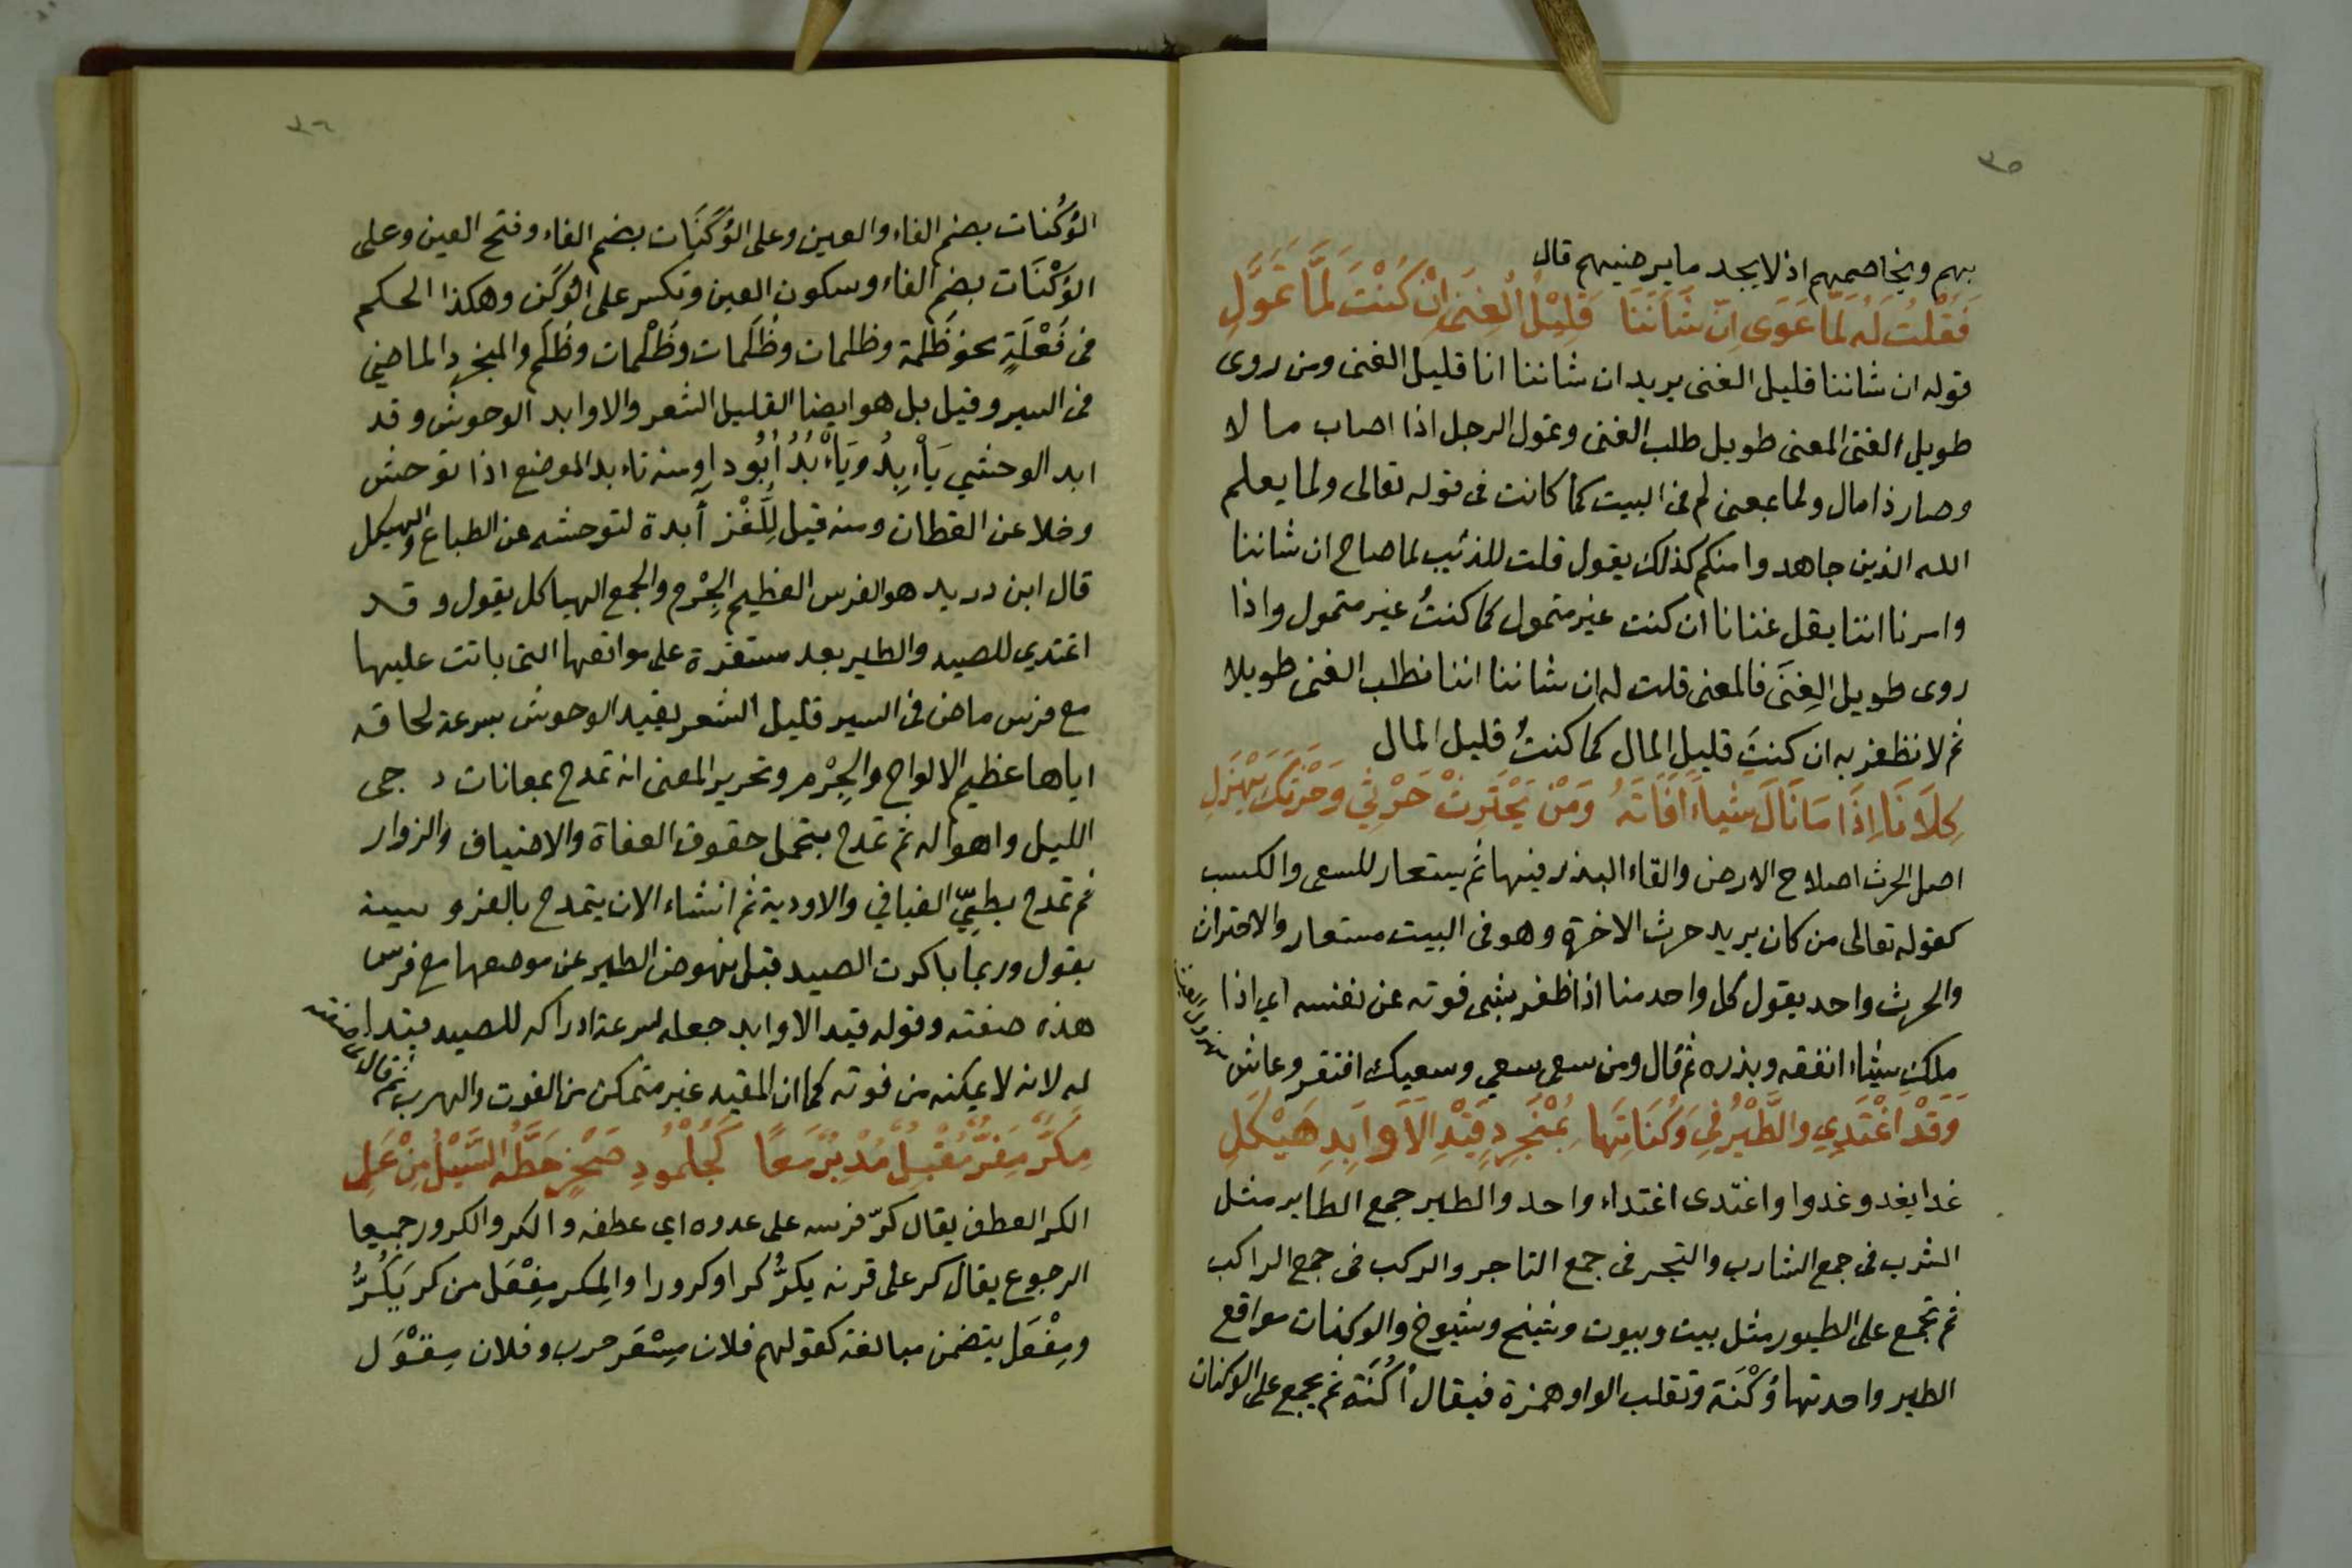 ٣٥
بهم ويخاصمهم اذ لا يجد ما يرضيهم قال
فَقُلْتُ لَهُ لَمَّا عَوَى اِنَّ شَأنَنَا قَلِيْلُ الْغِنَى اِنْ كُنْتَ لَمَّا تَمَوَّلِ
قوله ان شاننا قليل الغنى يريد ان شاننا انا قليل الغنى ومن روى
طويل الغنى المعنى طويل طلب الغنى وتمول الرجل اذا اصاب ما لا
وصار ذا مال ولما بمعنى لم فى البيت كما كانت فى قوله تعالى ولما يعلم
الله الذين جاهدوا منكم كذلك يقول قلت للذئيب لما صاح ان شاننا
واسرنا اننا يقل غنانا ان كنت غير متمول كما كنتُ غير متمول واذا
روى طويل الغِنَى فالمعنى قلت له ان شاننا اننا نطلب الغنى طويلا
ثم لا نظفر به ان كنتَ قليل المال كما كنتُ قليل المال
كِلَانَا اِذَا مَا نَالَ شَيْاءً اَفَاتَهُ وَمَنْ يَحْتَرِثْ حَرْثِي وَحَرْثَكَ يَهْزَلِ
اصل الحرث اصلاح الارض والقاء البذر فيها ثم يستعار للسعى والكسب
كقوله تعالى من كان يريد حرث الاخرة وهو فى البيت مستعار والاحتراث
والحرث واحد يقول كل واحد منا اذا ظفر بشى فوته عن نفسه اي اذا
ملك شيئاء انفقه وبذره ثم قال ومن سعى سعي وسعيك افتقر وعاش مهزول العيش
وَقَدْ اَغْتَدِي وَالطَّيْرُ فِي وَكُنَاتِهَا بِمُنْجَرِدٍ قَيْدِ الْاَوَابِدِ هَيْكَلِ
غدا يغدو غدوا واغتدى اغتداء واحد والطير جمع الطاير مثل
الشرب فى جمع الشارب والتجر فى جمع التاجر والركب فى جمع الراكب
ثم تجمع على الطيور مثل بيت وبيوت وشيخ وشيوخ والوكنات مواقع
الطير واحدتها وُكْنَة وتقلب الواو همزة فيقال اُكْنَة ثم يجمع على الوكنات
٣٦
الوُكُنات بضم الفاء والعين وعلى الوُكَنَات بضم الفاء وفتح العين وعلى
الوُكْنَات بضم الفاء وسكون العين وتكسر على الوُكَن وهكذا الحكم
فى فُعْلَةٍ نحو ظُلمة وظلمات وظُلَمات وظُلْمات وظُلَم والمنجرد الماضي
فى السير وقيل بل هو ايضا القليل الشعر والاوابد الوحوش وقد
ابد الوحشي يَأْبِدُ وَيَأْبُدُ اُبُودا ومنه تاءبد الموضع اذا توحش
وخلا عن القطان ومنه قيل لِلَّغْز آبدة لتوحشه عن الطباع والهيكل
قال ابن دريد هو الفرس العظيم الجِرْم والجمع الهياكل يقول وقد
اغتدي للصيد والطير بعد مستقرة على مواقعها التى باتت عليها
مع فرس ماض فى السير قليل الشعر يقيد الوحوش بسرعة لحاقه
اياها عظيم الالواح والجِرْم وتحرير المعنى انه تمدح بمعانات د جى
الليل واهواله ثم تمدح بتحمل حقوق العفاة والاضياف والزوار
ثم تمدح بطيّ الفيافي والاودية ثم انشاء الان يتمدح بالفروسية
يقول وربما باكرت الصيد قبل نهوض الطير عن موضعها مع فرس
هذه صفته وقوله قيد الاوابد جعله لسرعة ادراكه للصيد قيدا
له لانه لا يمكنه من فوته كما ان المقيد غير متمكن من الفوت والهرب ثم قال
مِكَرٍّ مِفَرٍّ مُقْبِلٍ مُدْبِرٍ مَعًا كَجُلْمُودِ صَخْرٍ حَطَّهُ السَّيْلُ مِنْ عَلِ
الكر العطف يقال كرّ فرسه على عدوه اي عطفه والكر والكرور جميعا
الرجوع يقال كر على قرنه يكرُّ كرا وكرورا والمِكر مِفْعَل من كر يَكُرُّ
ومِفْعَل يتضمن مبالغة كقولهم فلان مِسْعَر حرب وفلان مِقْوَل